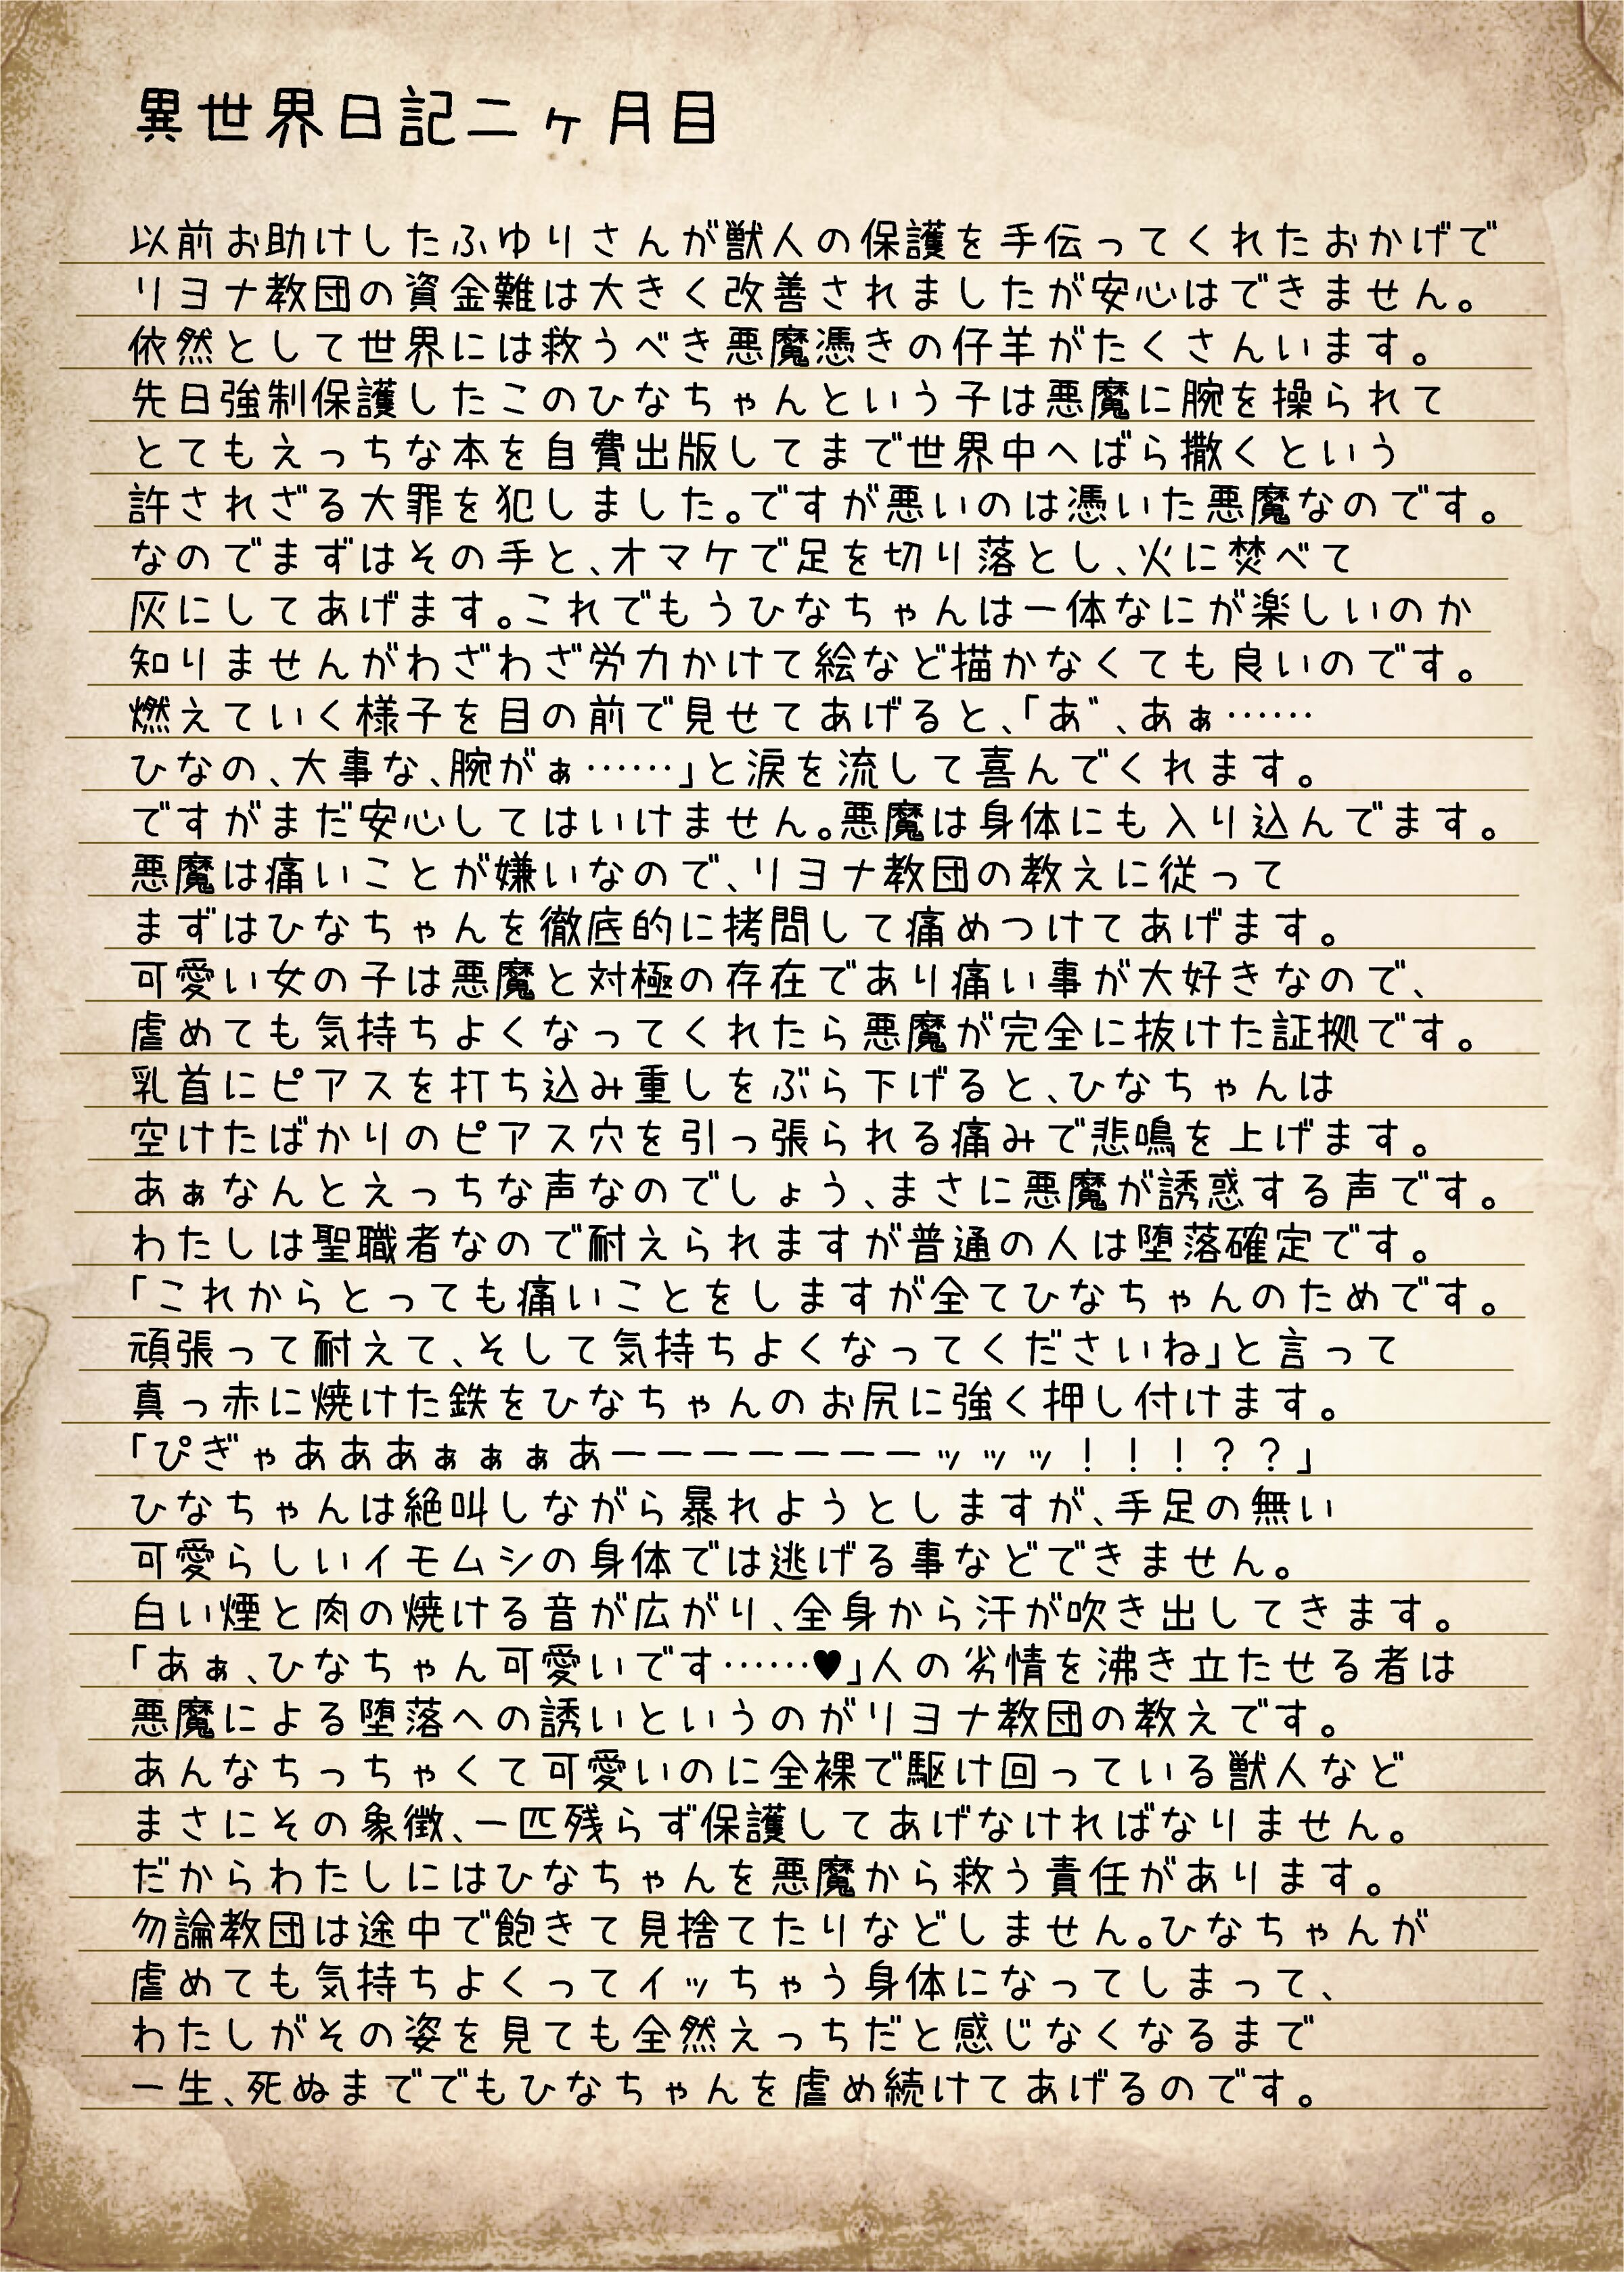 異世界日記二ヶ月目
以前お助けしたふゆりさんが獣人の保護を手伝ってくれたおかげで
リヨナ教団の資金難は大きく改善されましたが安心はできません。
依然として世界には救うべき悪魔憑きの仔羊がたくさんいます。
先日強制保護したこのひなちゃんという子は悪魔に腕を操られて
とてもえっちな本を自費出版してまで世界中へばら撒くという
許されざる大罪を犯しました。ですが悪いのは憑いた悪魔なのです。
なのでまずはその手と、オマケで足を切り落とし、火に焚べて
灰にしてあげます。これでもうひなちゃんは一体なにが楽しいのか
知りませんがわざわざ労力かけて絵など描かなくても良いのです。
燃えていく様子を目の前で見せてあげると、「あ゛、あぁ……
ひなの、大事な、腕がぁ……」と涙を流して喜んでくれます。
ですがまだ安心してはいけません。悪魔は身体にも入り込んでます。
悪魔は痛いことが嫌いなので、リヨナ教団の教えに従って
まずはひなちゃんを徹底的に拷問して痛めつけてあげます。
可愛い女の子は悪魔と対極の存在であり痛い事が大好きなので、
虐めても気持ちよくなってくれたら悪魔が完全に抜けた証拠です。
乳首にピアスを打ち込み重しをぶら下げると、ひなちゃんは
空けたばかりのピアス穴を引っ張られる痛みで悲鳴を上げます。
あぁなんとえっちな声なのでしょう、まさに悪魔が誘惑する声です。
わたしは聖職者なので耐えられますが普通の人は堕落確定です。
「これからとっても痛いことをしますが全てひなちゃんのためです。
頑張って耐えて、そして気持ちよくなってくださいね」と言って
真っ赤に焼けた鉄をひなちゃんのお尻に強く押し付けます。
「ぴぎゃあああぁぁぁあーーーーーーーッッッ！！！？？」
ひなちゃんは絶叫しながら暴れようとしますが、手足の無い
可愛らしいイモムシの身体では逃げる事などできません。
白い煙と肉の焼ける音が広がり、全身から汗が吹き出してきます。
「あぁ、ひなちゃん可愛いです……♥」人の劣情を沸き立たせる者は
悪魔による堕落への誘いというのがリヨナ教団の教えです。
あんなちっちゃくて可愛いのに全裸で駆け回っている獣人など
まさにその象徴、一匹残らず保護してあげなければなりません。
だからわたしにはひなちゃんを悪魔から救う責任があります。
勿論教団は途中で飽きて見捨てたりなどしません。ひなちゃんが
虐めても気持ちよくってイッちゃう身体になってしまって、
わたしがその姿を見ても全然えっちだと感じなくなるまで
一生、死ぬまででもひなちゃんを虐め続けてあげるのです。